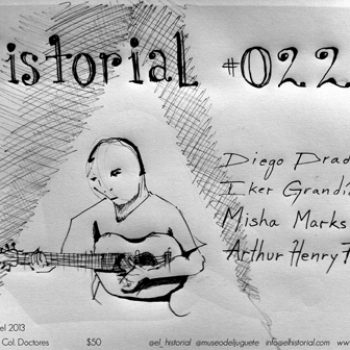 istorial #022
Diego Prad
Iker Grandí
Misha Marks
Arthur Henry F
el 2013
Col. Doctores $50 @el_historial @museodeljuguete info@elhistorial.com www.